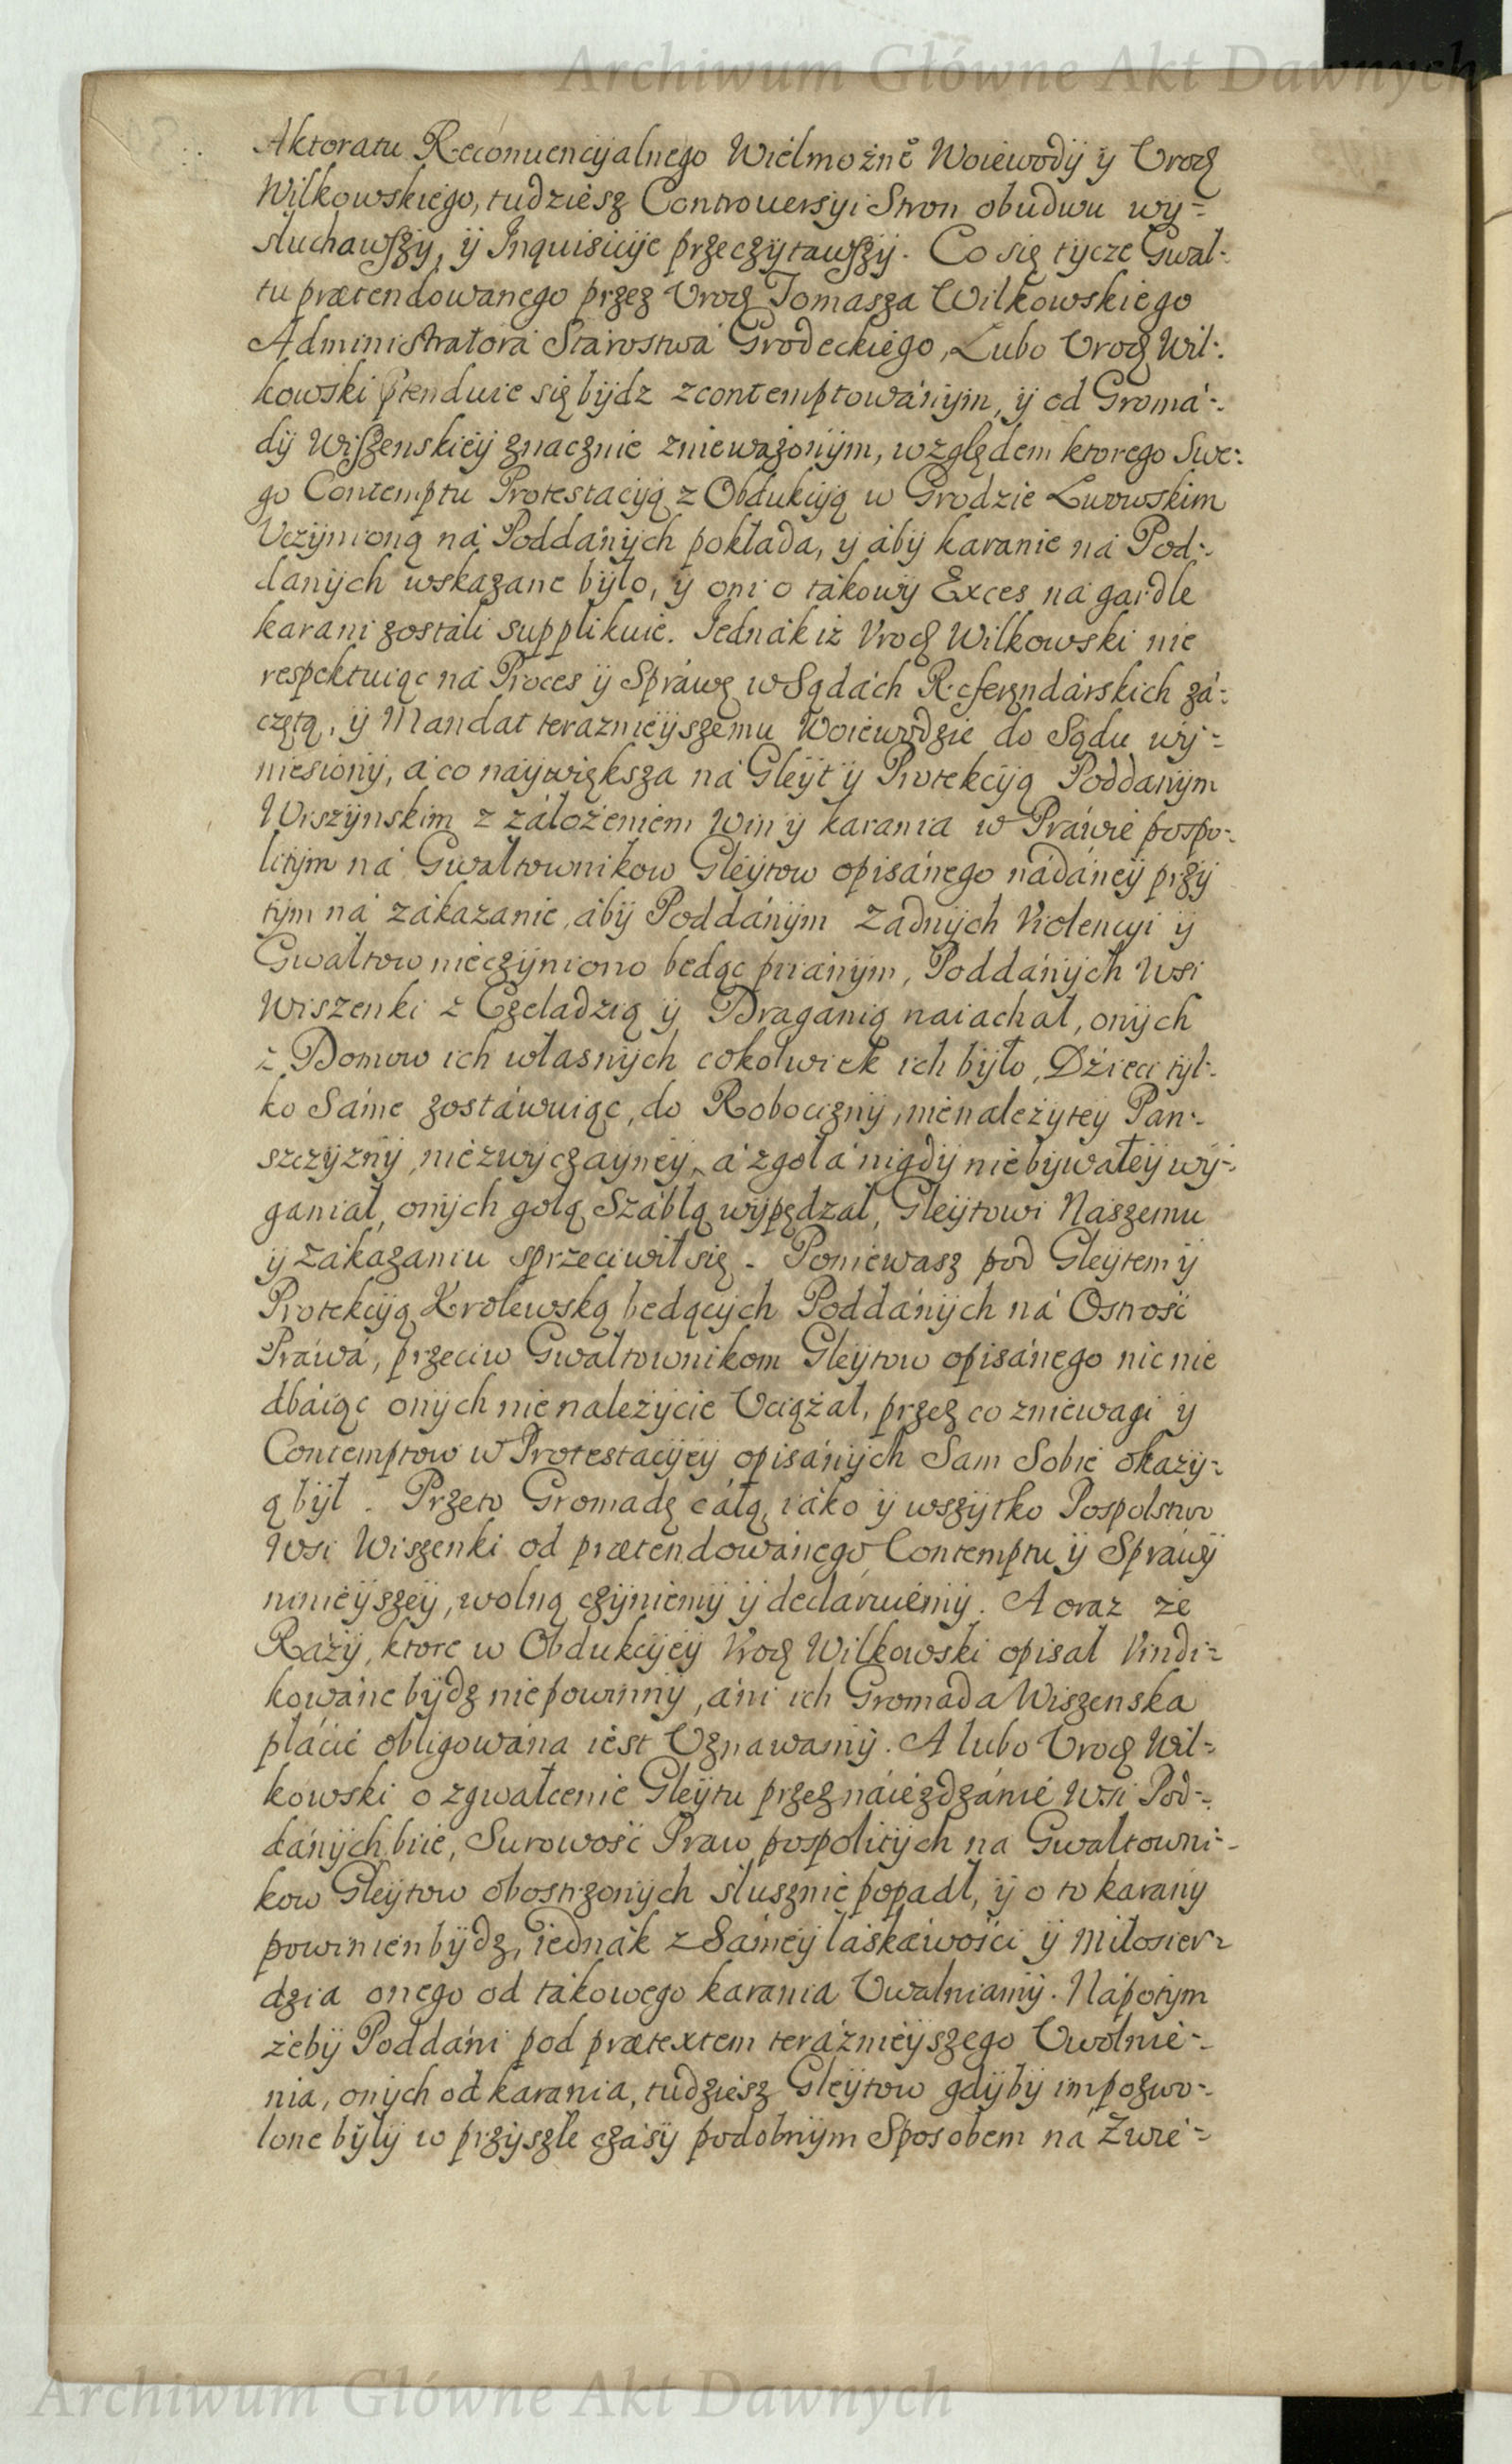 Archiwum Główne Akt Dawnych
Aktoratu Reconuencyialnego Wielmożnē Woiewody y Vrodz
Wilkowskiego, tudziesz Controuersyi Stron obudwu wy-
słuchawszy, y Inquisicye przeczytawszy. Co się tycze Gwał-
tu prætendowanego przez Vrodz Tomasza Wilkowskiego
Administratora Starostwa Grodeckiego, Lubo Vrodz Wil-
kowski p̄tenduie się bydz zcontemptowánym, y od Gromá-
dy Wiszenskiey znacznie znieważonym, względem ktorego Swe-
go Contemptu Protestacyą z Obdukcyą w Grodzie Lwowskim
Vczynioną ná Poddánych pokłada, y áby karanie ná Pod-
danych wskazane było, y oni o tákowy Exces ná gardle
karani zostáli supplikuie. Jednák iż Vrodz Wilkowski nie
respektuiąc ná Proces y Spráwę w Sądách Referendárskich zá-
czętą, y Mandat teraznieyszemu Woiewodzie do Sądu wy-
niesiony, á co naywiększa ná Gleyt y Protekcyą Poddanym
Wiszynskim z záłożeniem Win y karania w Práwie pospo-
litym ná Gwałtownikow Gleytow opisánego nádáney przy
tym ná zákazanie, áby Poddánym żadnych Violencyi y
Gwałtow nieczyniono bedąc piianym, Poddánych Wsi
Wiszenki z Czeladzią y Draganią naiachał, onych
z Domow ich własnych cokolwiek ich było, Dżieci tyl-
ko Sáme zostáwuiąc, do Robocizny, nienależytey Pan-
szczyzny, niezwyczayney, á zgołá nigdy niebywałey wy-
ganiał, onych gołą Száblą wypędzał, Gleytowi Naszemu
y zákazaniu sprzeciwił się. Poniewasz pod Gleytem y
Protekcyą Krolewską bedących Poddánych ná Ostrość
Práwá, przeciw Gwałtownikom Gleytow opisánego nic nie
dbáiąc onych nie należycie Vciążał, przez co zniewagi y
Contemptow w Protestacyey opisánych Sam Sobie okazy-
ą był. Przeto Gromadę cáłą, iáko y wszytko Pospolstwo
Wsi Wiszenki od prætendowánego Contemptu y Spráwy
ninieyszey, wolną czyniemy y declaruiemy. A oraz że
Rázy, ktore w Obdukcyey Vrodz Wilkowski opisał Vindi-
kowáne bydz niepowinny, áni ich Gromada Wiszenska
płácić obligowána iest Vznawamy. A lubo Vrodz Wil-
kowski o zgwałcenie Gleytu przez náieżdzánie Wsi Pod-
dánych bicie, Surowość Praw pospolitych na Gwałtowni-
kow Gleytow obostrzonych słusznie popadł, y o to karany
powinien bydz, iednák z Sámey łáskáwości y Miłosier-
dzia onego od tákowego karania Vwalniamy. Nápotym
żeby Poddáni pod prætextem teráznieyszego Vwolnie-
nia, onych od karania, tudziesz Gleytow gdyby im pozwo-
lone były w przyszłe czásy podobnym Sposobem ná Zwie-
Archiwum Główne Akt Dawnych